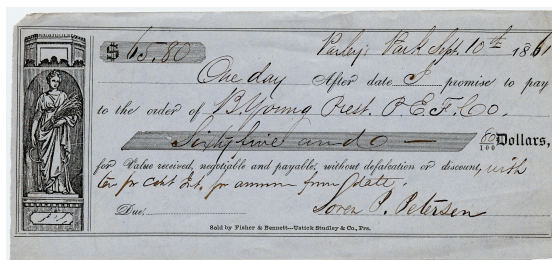 $ 65,80 Parley's Park Sept. 10th 1861
One day After date I promise to pay
to the order of B. Young Prest. P. E. F. Co.
Sixty five and 80/100 Dollars,
for Value received, negotiable and payable, without defalcation or discount, with
ten pr cent Int. pr annum from date.
Due: Soren P. Petersen
Sold by Fisher & Bennett--Ustick Studley & Co., Prs.